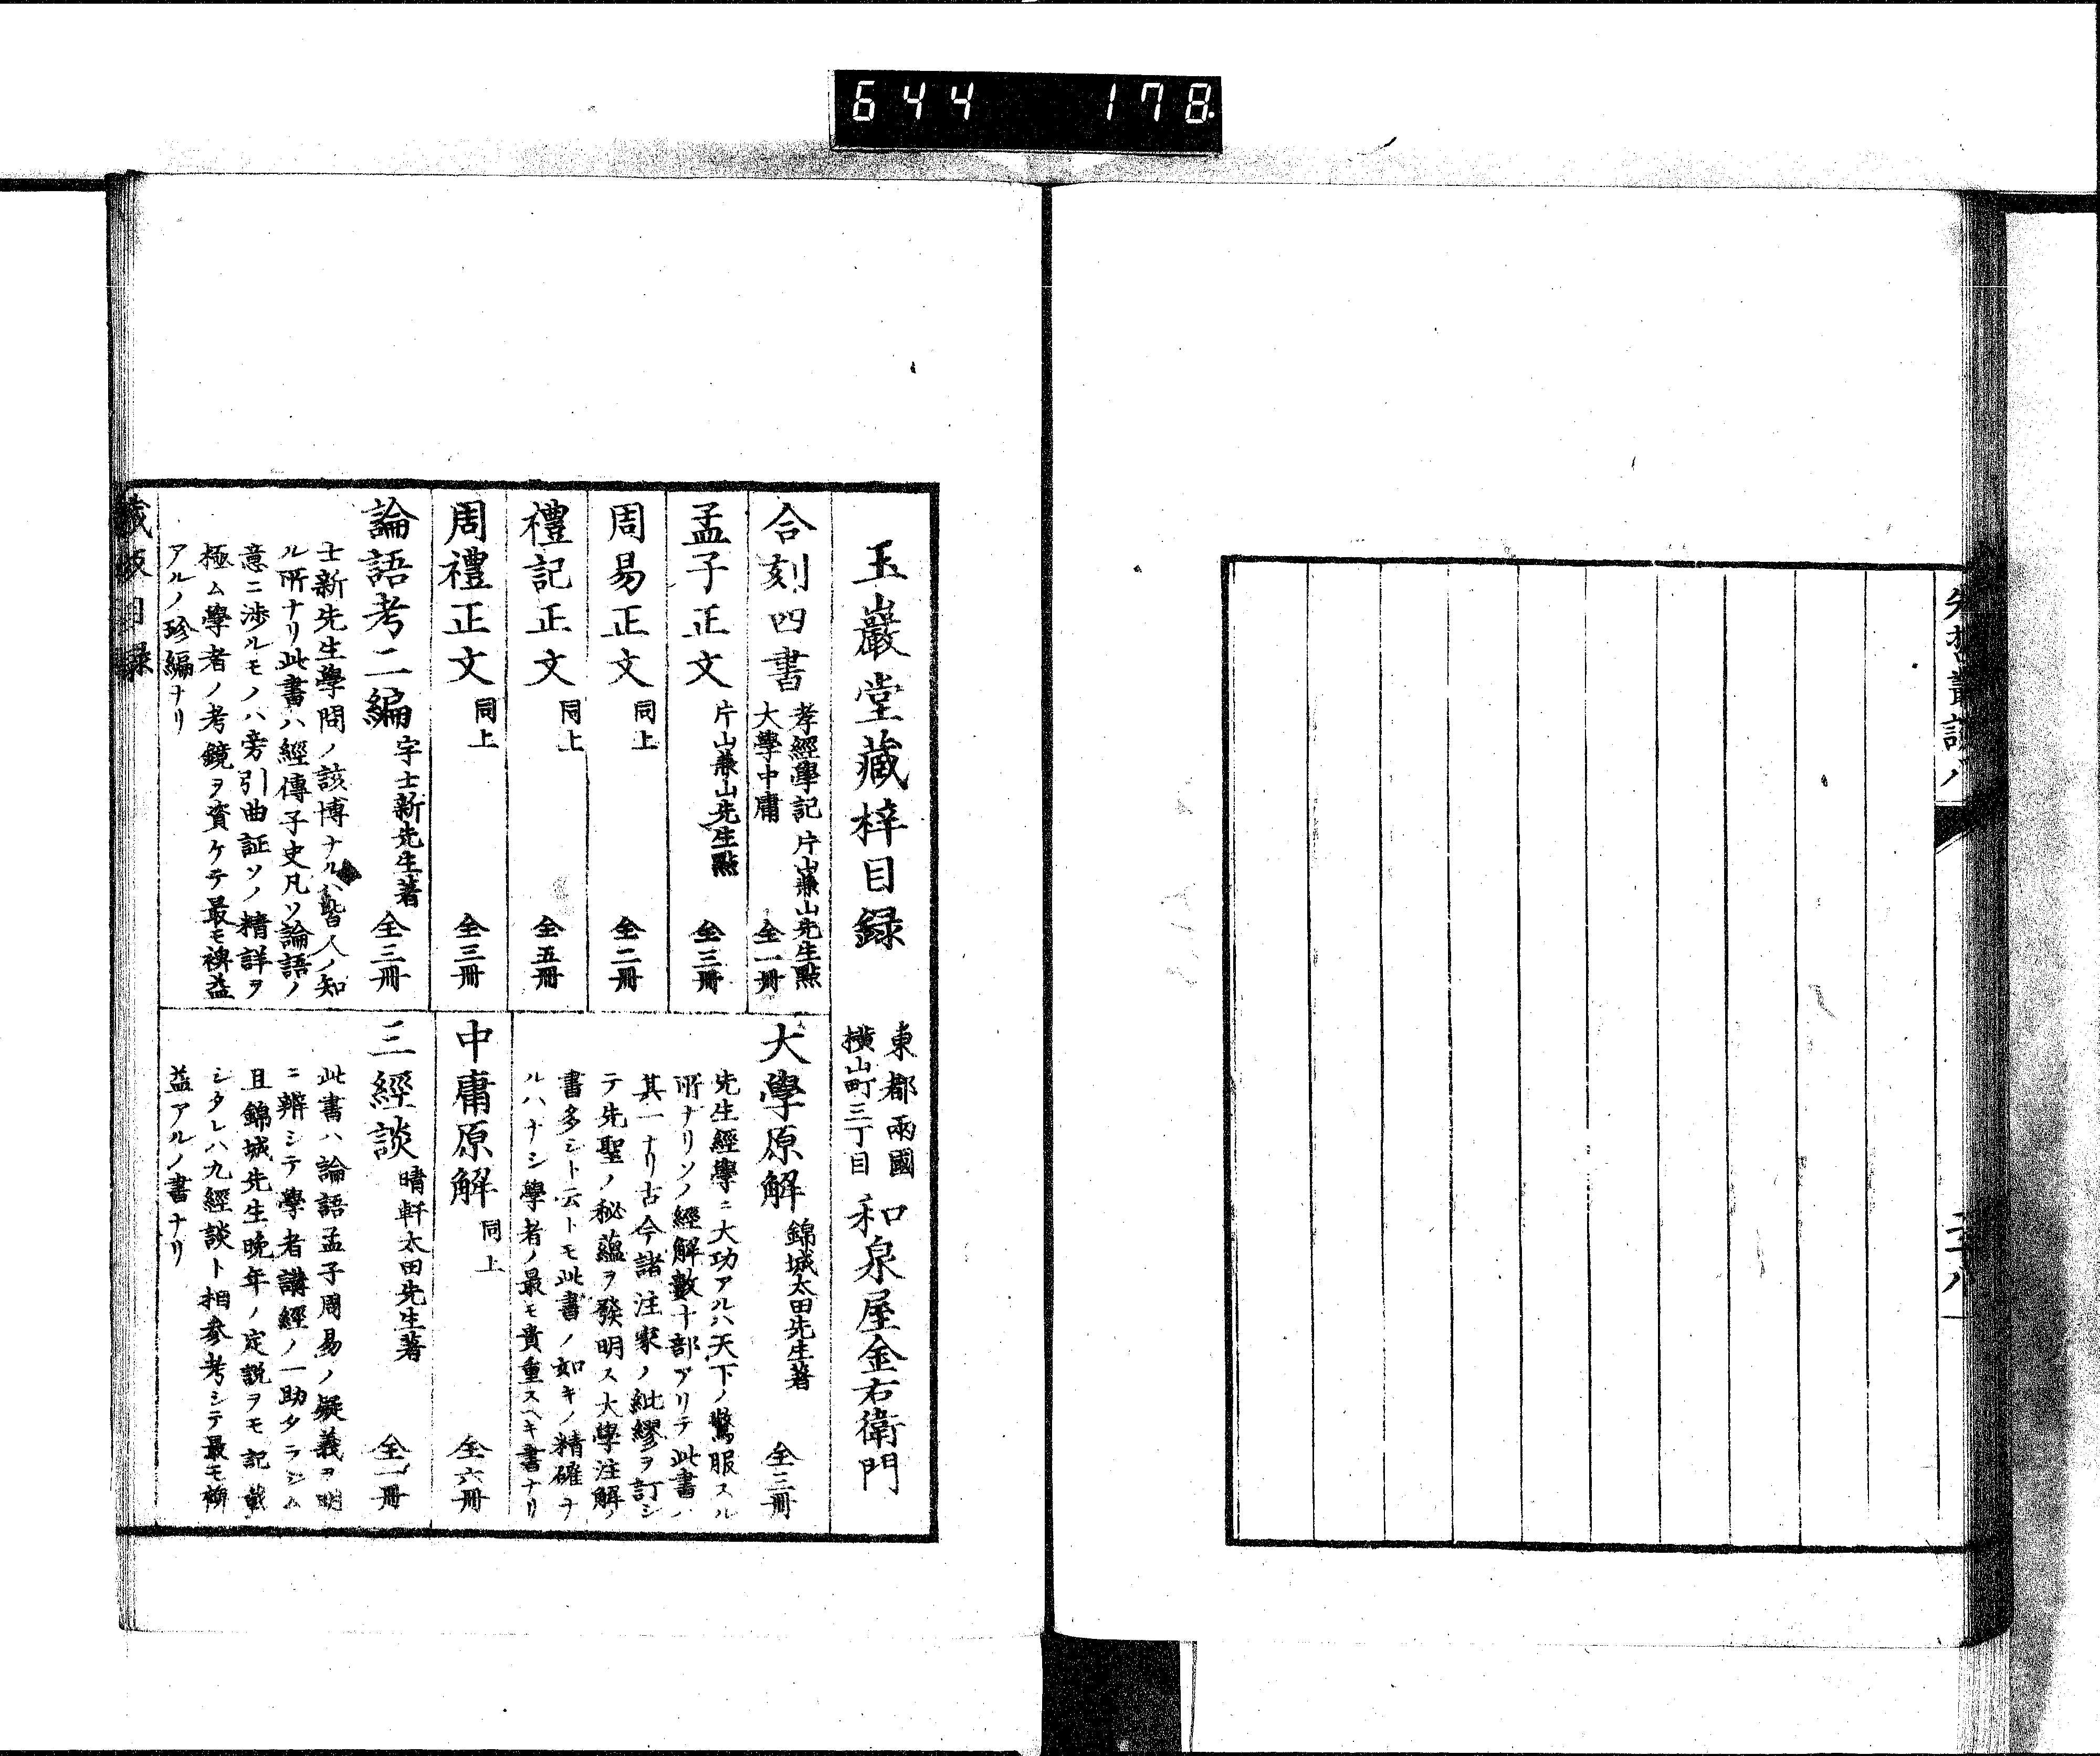 644 178
先哲叢談八
玉巖堂藏梓目録
東都兩國
横山町三丁目
和泉屋金右衛門
合刻四書
孝經學記
大學中庸
片山兼山先生點
全一冊
孟子正文 片山兼山先生點 全三冊
周易正文 同上 全二冊
禮記正文 同上 全五冊
周禮正文 同上 全三冊
論語考二編 宇士新先生著 全三冊
士新先生學問ノ該博ナルハ皆人ノ知
ル所ナリ此書ハ經傳子史凡ソ論語ノ
意ニ渉ルモノハ旁引曲証ソノ精詳ヲ
極ム學者ノ考鏡ヲ資ケテ最モ裨益
アルノ珍編ナリ
大學原解 錦城太田先生著 全三冊
先生經學ニ大功アルハ天下ノ驚服スル
所ナリソノ經解數十部アリテ此書ハ
其一ナリ古今諸注家ノ紕繆ヲ訂シ
テ先聖ノ秘蘊ヲ發明ス大學注解ノ
書多シト云トモ此書ノ如キノ精確ナ
ルハナシ學者ノ最モ貴重スヘキ書ナリ
中庸原解 同上 全六冊
三經談 晴軒太田先生著 全一冊
此書ハ論語孟子周易ノ疑義ヲ明
ニ辨シテ學者講經ノ一助タラシム
且錦城先生晩年ノ定説ヲモ記載
シタレハ九經談ト相參考シテ最モ裨
益アルノ書ナリ
藏板目録